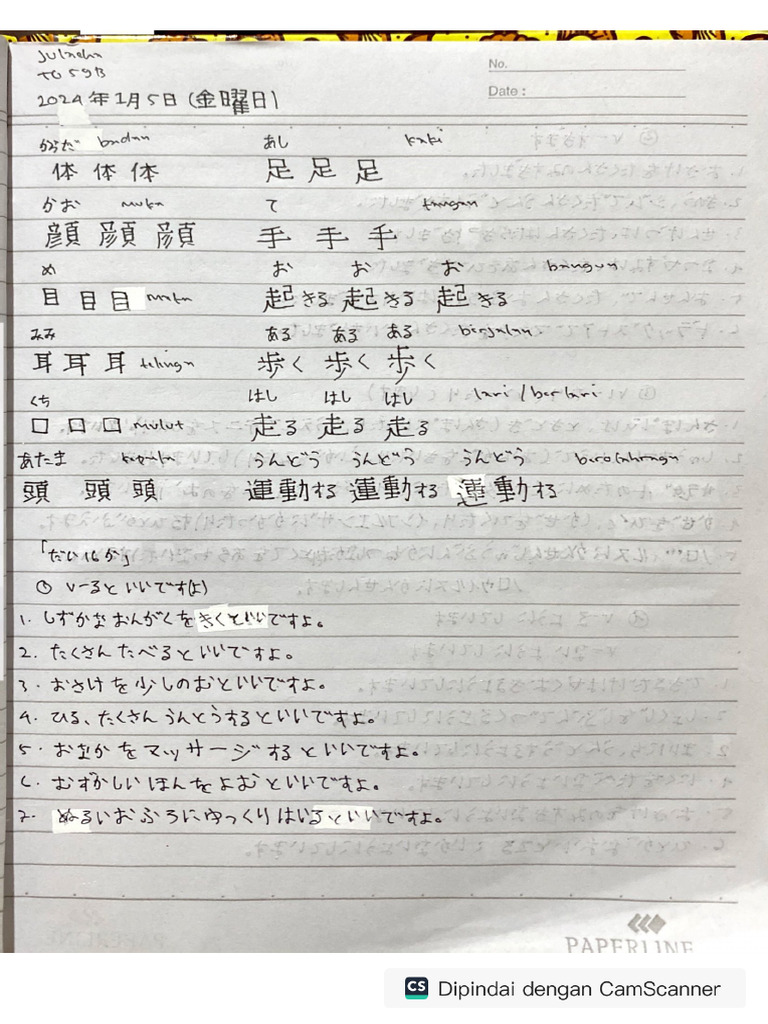 Julaeha
TG 59B
No.
Date :
2024年1月5日(金曜日)
からだ badan あし kaki
体 体 体 足 足 足
かお muka て tangan
顔 顔 顔 手 手 手
め お お お bangun
目 目 目 mata 起きる 起きる 起きる
みみ ある ある ある berjalan.
耳 耳 耳 telinga 歩く 歩く 歩く
くち はし はし はし lari/berlari
口 口 口 mulut 走る 走る 走る
あたま kepala うんどう うんどう うんどう berolahraga
頭 頭 頭 運動する 運動する 運動する
「だい16か」
① V-るといいです(よ)
1. しずかなおんがくをきくといいですよ。
2. たくさんたべるといいですよ。
3. おさけを少しのむといいですよ。
4. ひる、たくさんうんとうするといいですよ。
5. おなかをマッサージするといいですよ。
6. むずかしいほんをよむといいですよ。
7. ぬるいおふろにゆっくりはいるといいですよ。
PAPERLINE
CS Dipindai dengan CamScanner